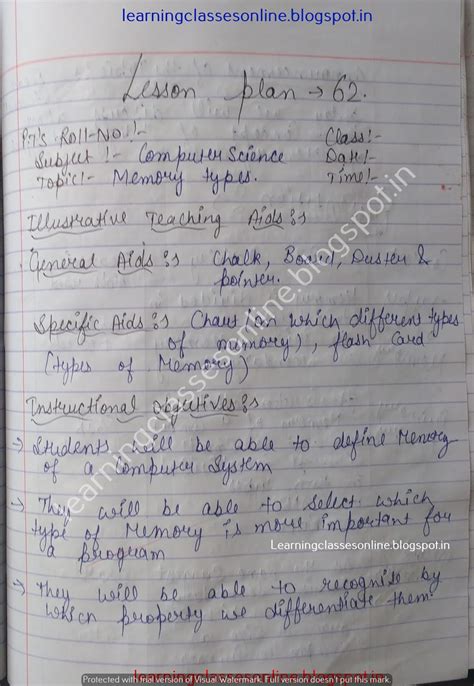 learningclassesonline.blogspot.in
Lesson plan → 62.
P.T's Roll-No!- Class!-
Subject!- Computer Science Date!-
Topic!- Memory types. Time!-
Illustrative Teaching Aids:
General Aids: Chalk, Board, Duster &
pointer.
Specific Aids: Chart (on which different types
of memory), flash card
(types of Memory)
Instructional objectives:
→ Students will be able to define Memory
of a Computer System
→ They will be able to select which
type of Memory is more important for
a program
Learningclassesonline.blogspot.in
→ They will be able to recognise by
which property we differentiate them
learningclassesonline.blogspot.in
Protected with trial version of Visual Watermark. Full version doesn't put this mark.
learningclassesonline.blogspot.in